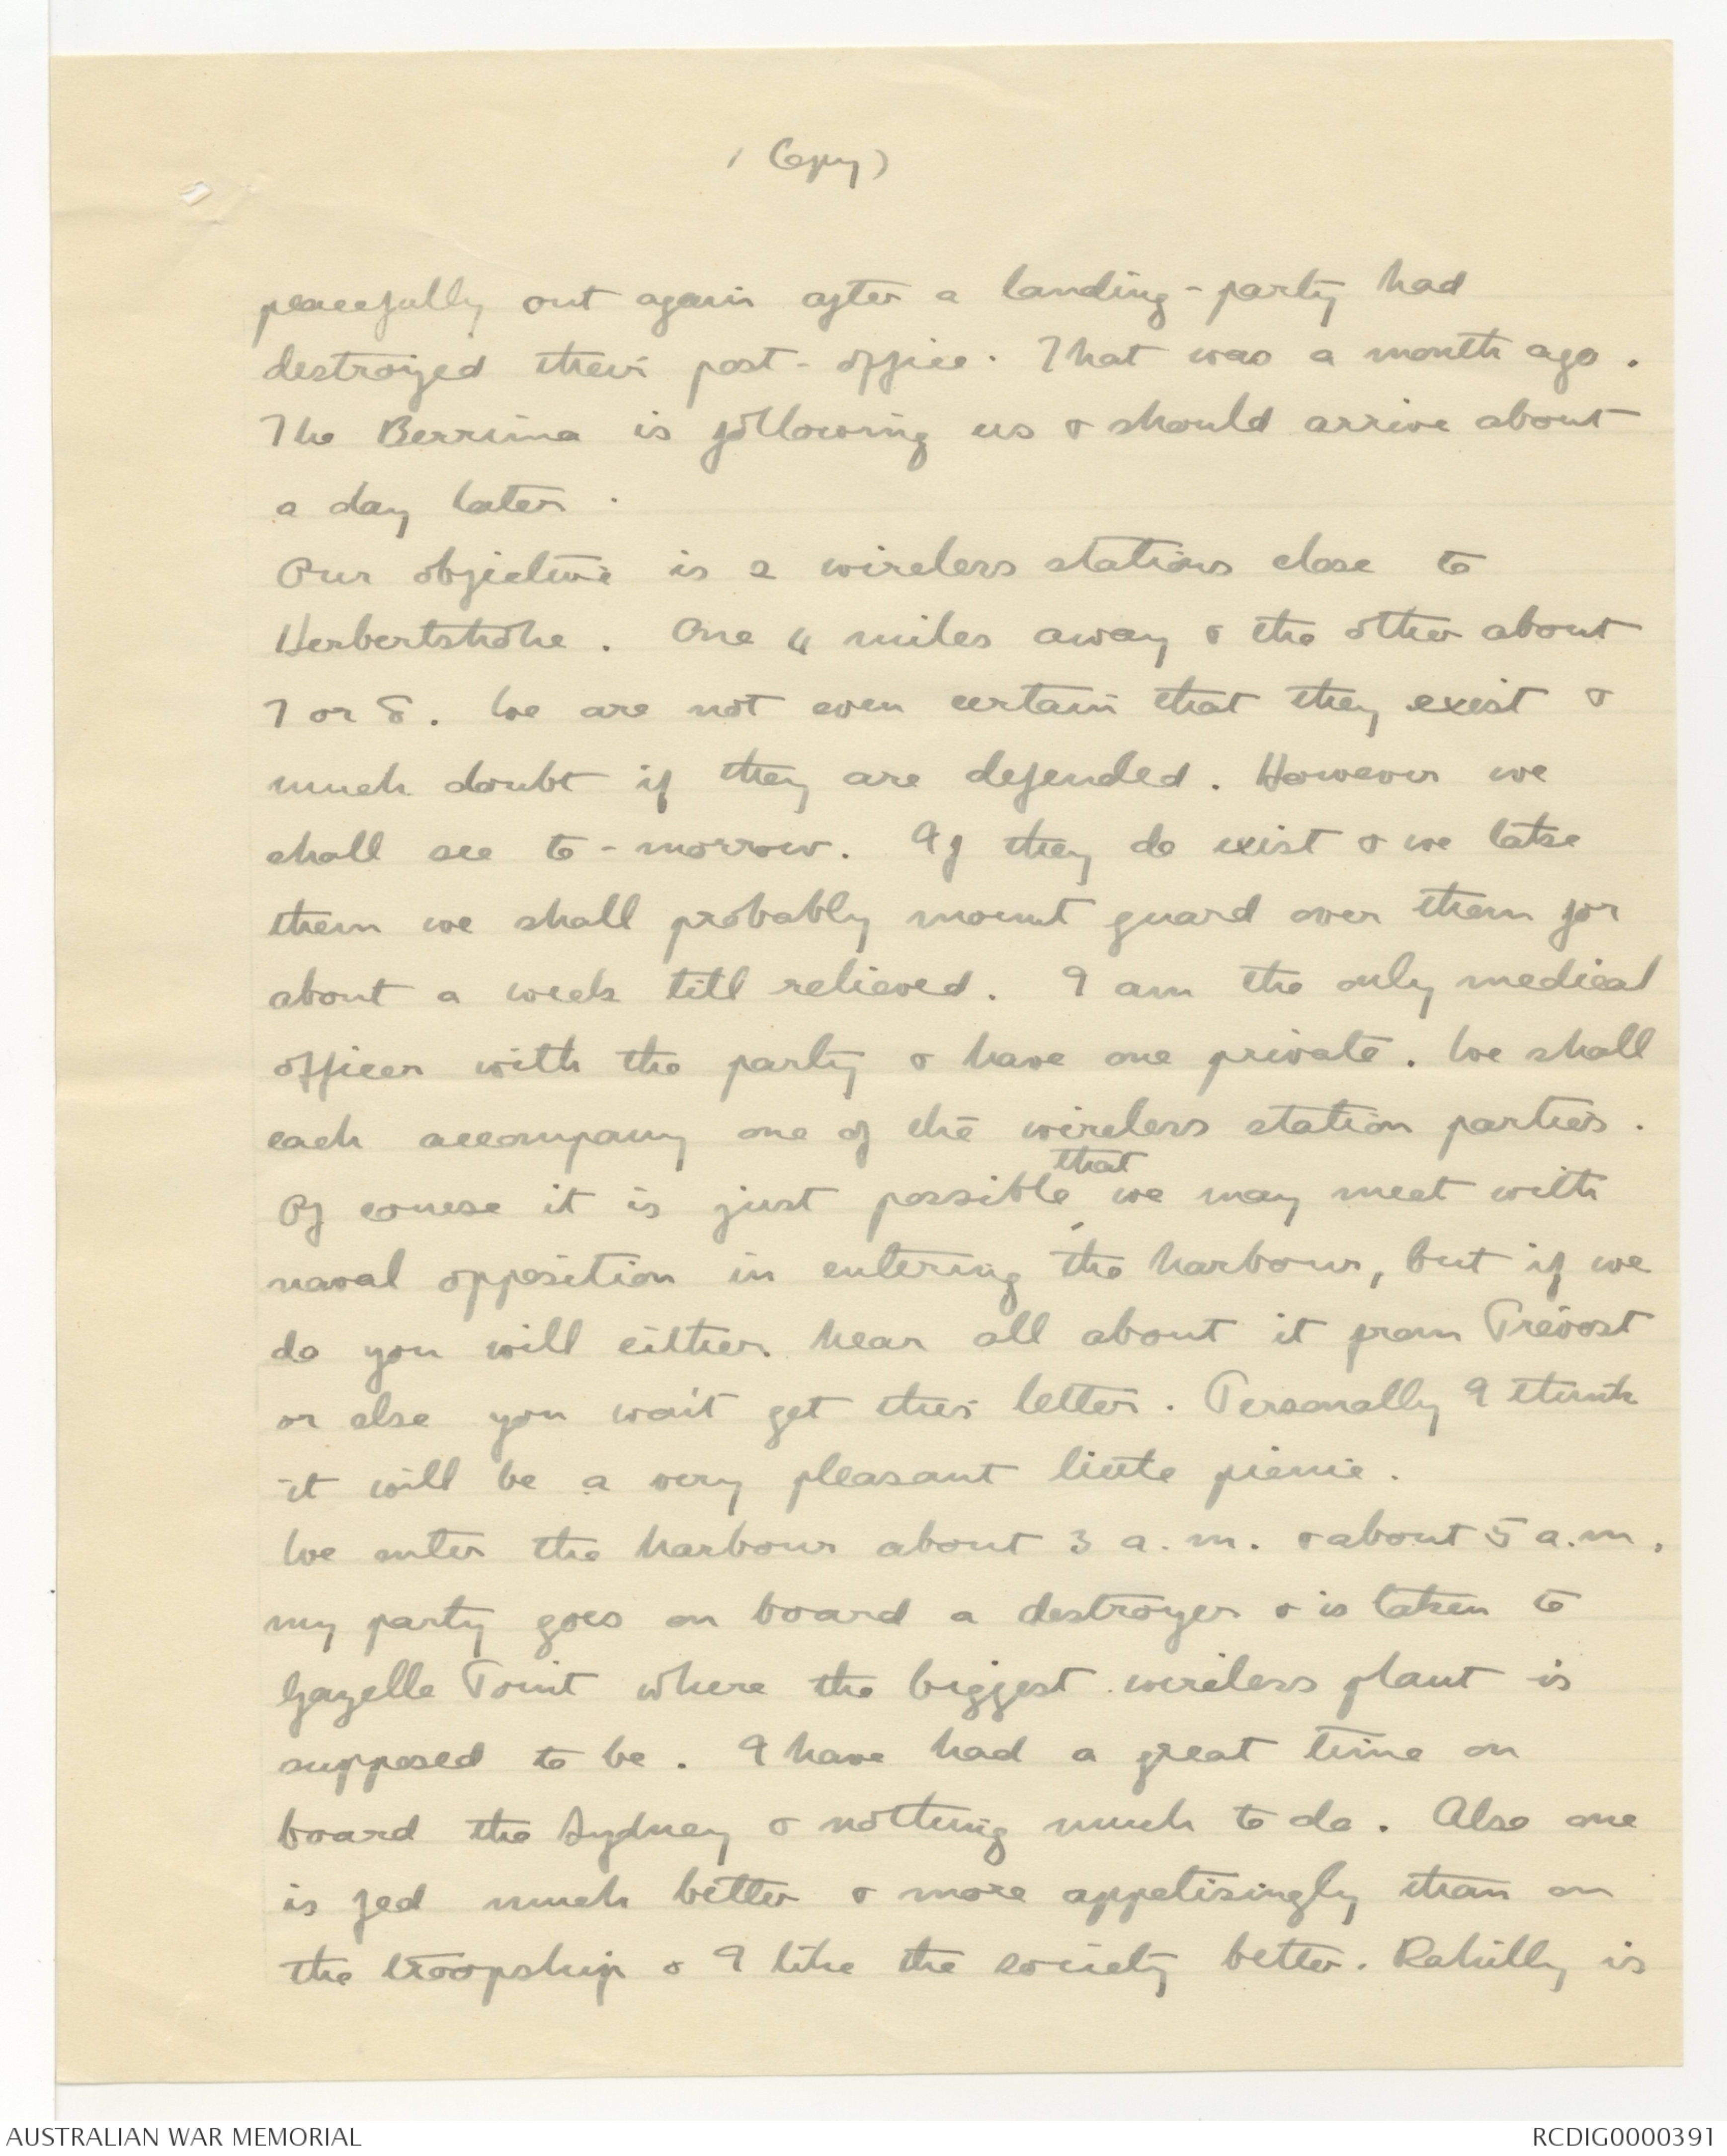 (Copy)
peacefully out again after a landing-party had
destroyed their post-office. That was a month ago.
The Berrima is following us & should arrive about
a day later.
Our objective is 2 wireless stations close to
Herbertshöhe. One 4 miles away & the other about
7 or 8. We are not even certain that they exist &
much doubt if they are defended. However we
shall see to-morrow. If they do exist & we take
them we shall probably mount guard over them for
about a week till relieved. I am the only medical
officer with the party & have one private. We shall
each accompany one of the wireless station parties.
Of course it is just possible that we may meet with
naval opposition in entering the harbour, but if we
do you will either hear all about it from Prevost
or else you won't get this letter. Personally I think
it will be a very pleasant little picnic.
We enter the harbour about 3 a.m. & about 5 a.m.
my party goes on board a destroyer & is taken to
Gazelle Point where the biggest wireless plant is
supposed to be. I have had a great time on
board the Sydney & nothing much to do. Also one
is fed much better & more appetisingly than on
the troopship & I like the society better. Rahilly is
AUSTRALIAN WAR MEMORIAL
RCDIG0000391